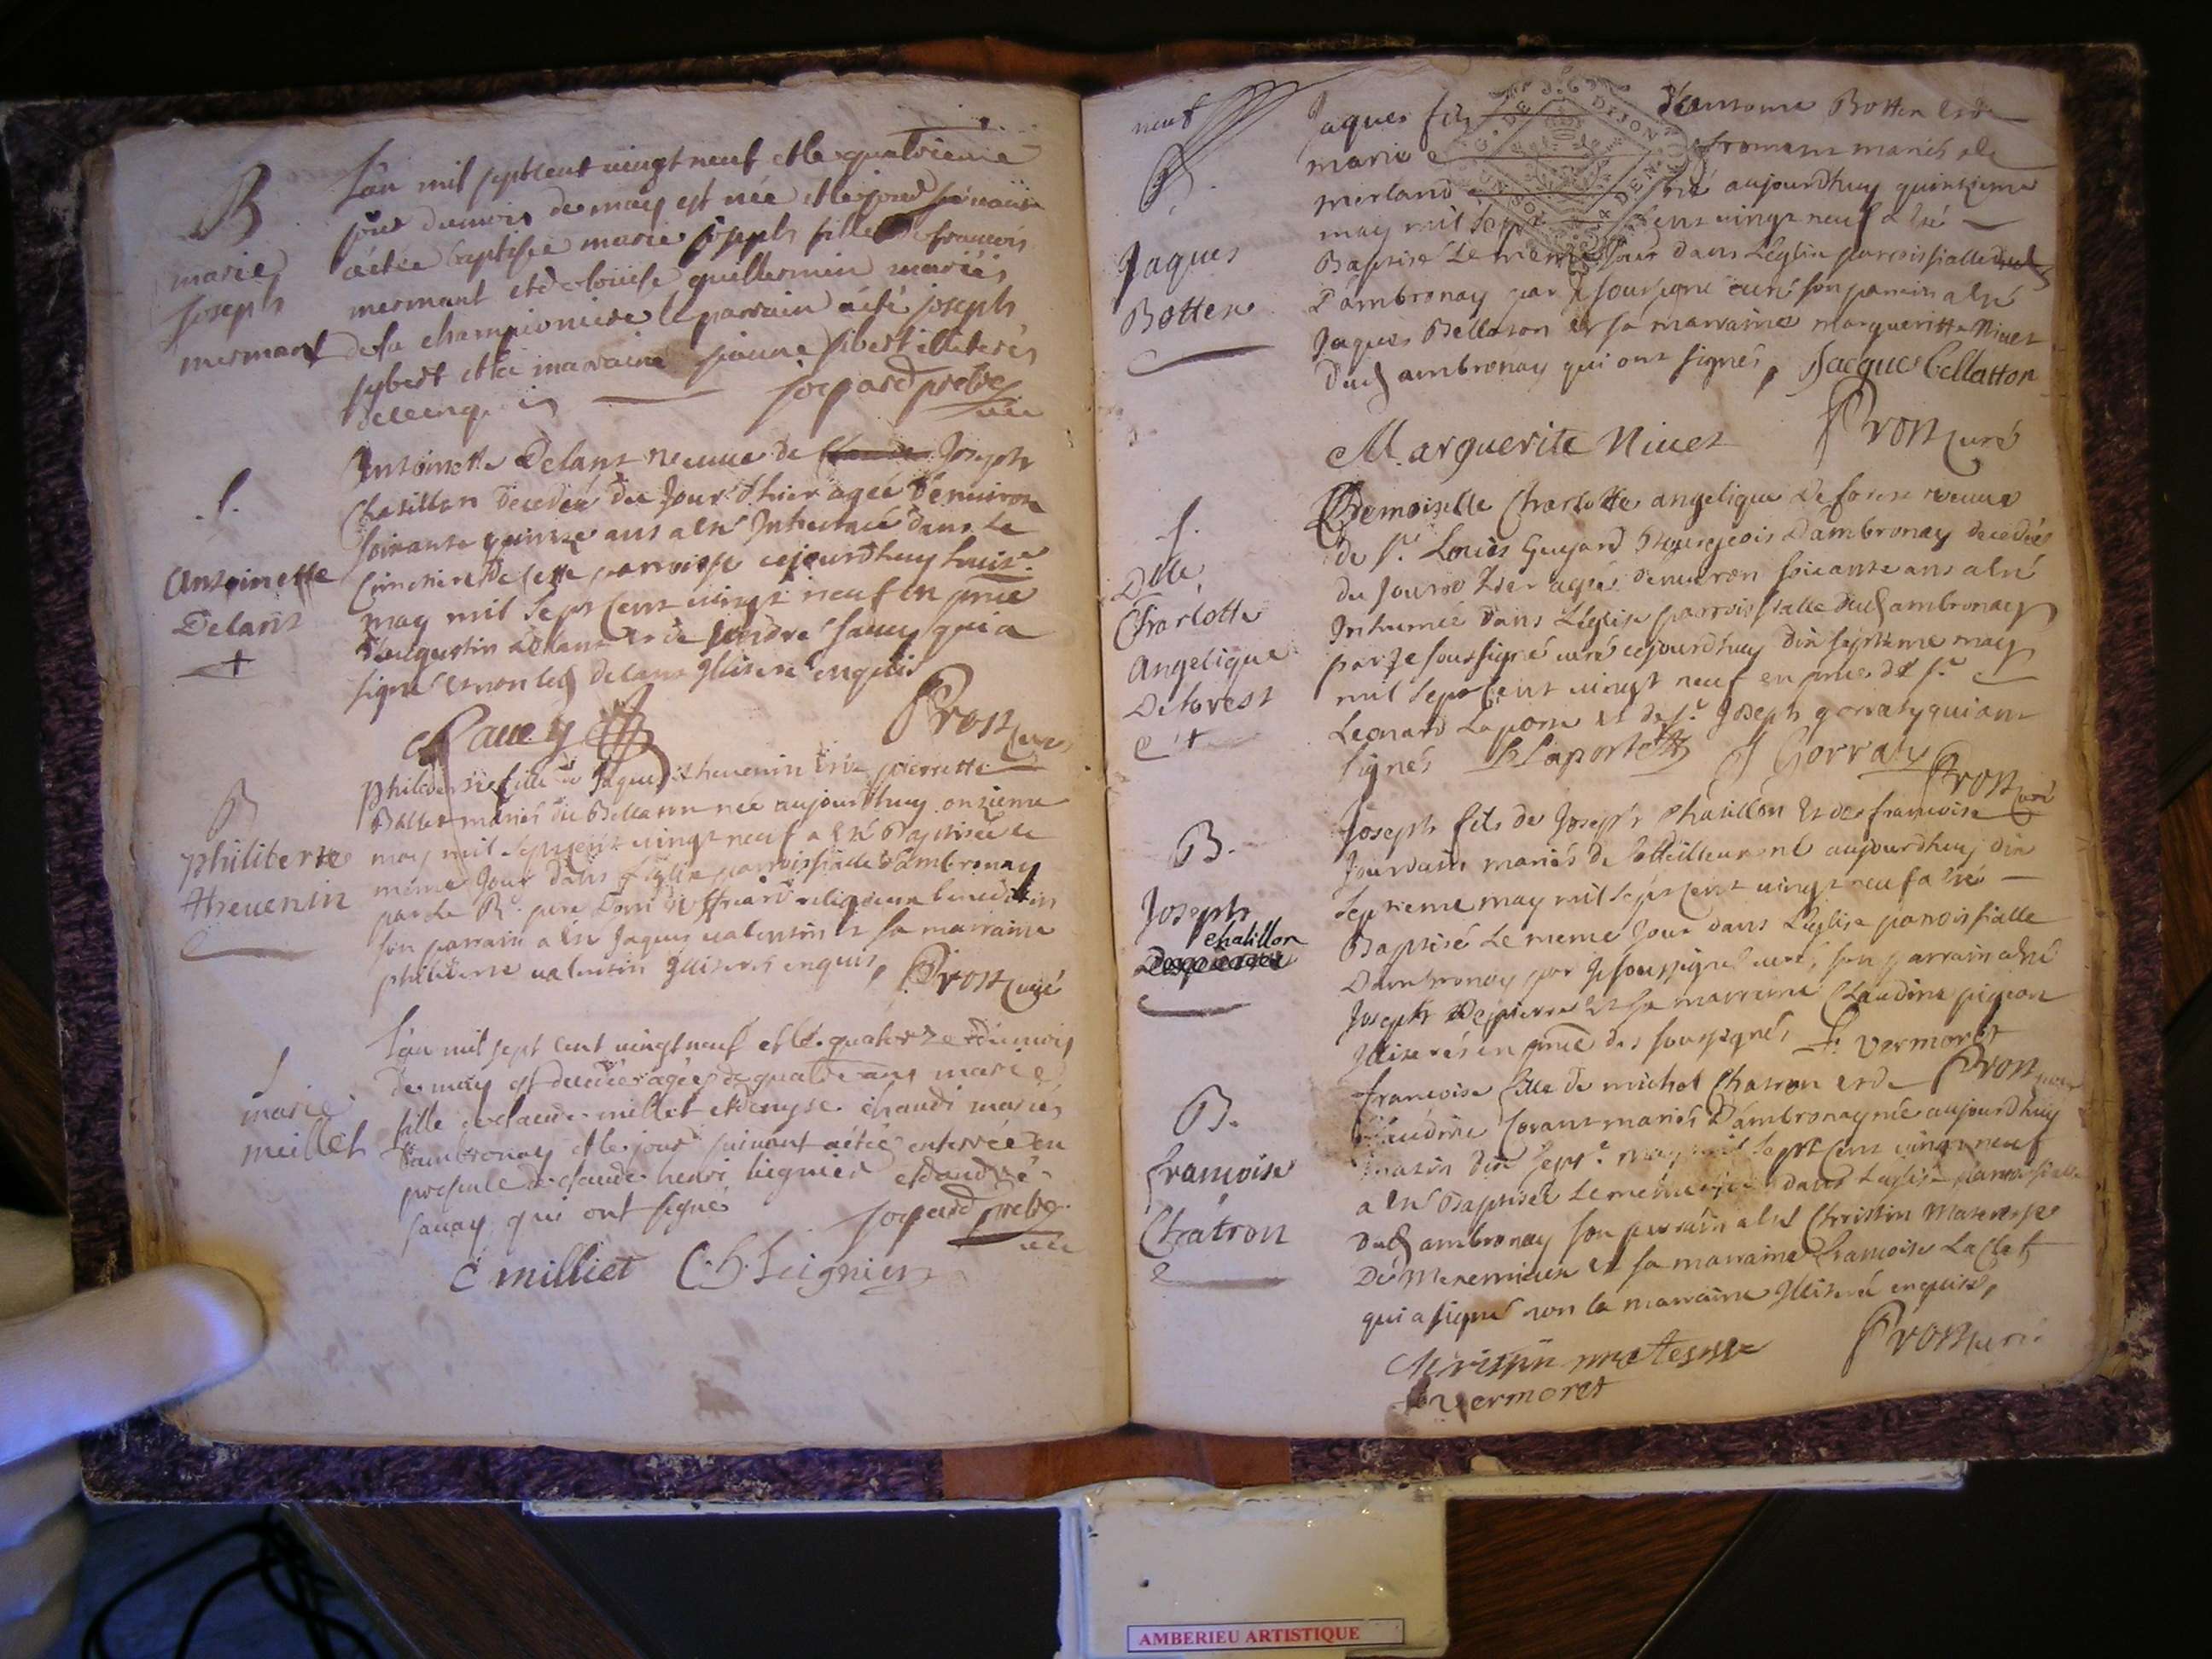 B
marie
joseph
mermant
L'an mil sept cent vingt neuf et le quatrieme
jour du mois de may est née et le jour suivant
a étée baptisée marie joseph fille de francois
mermant et de louise guillermin mariés
de la championiere le parrain a été joseph
sibert et la maraine sibert illiterés
de ce enquis
prebtre
S.
Antoinette
Delant
+
Antoinette Delant veuve de Joseph
Chatillon decedée du Jour d'hier agée d'environ
soixante quinze ans a été Inhumée dans le
Cimetiere de cette parroisse cejourdhuy huit.e
may mil sept cent vingt neuf en pnce
d'augustin delant et de André sauey qui a
signé et non led delant Illiteré enquis
Sauey Pron curé
B
philiberte
thevenin
philiberte fille de Jaques thevenin et de pierrette
Ballet mariés du Bellaton née aujourdhuy onzieme
may mil sept cent vingt neuf a été Baptisée le
même Jour dans l'Eglise parroissialle d'ambronay
par le R. pere Dom religieux benedictin
son parrain a été Jaques valentin et sa marraine
philiberte valentin Illiterés enquis, Pron curé
S
marie
meillet
L'an mil sept cent vingt neuf et le quatorze du mois
de may est decedée agée de quatre ans marie
fille de claude millet et denyse chaudi mariés
d'ambronay et le jour suivant a étée enterrée en
presence de claude henri liegnier et d'andré
sauay qui ont signé
prebtre
C milliet C. h. Leignier
neuf
B.
Jaques
Botten
Jaques fils d'antoine Botten et de
marie froment mariés de
merland né aujourdhuy quinzieme
may mil sept Cent vingt neuf a été
Baptisé le meme Jour dans l'eglise parroissialle
d'ambronay par Je soussigné curé son parrain a été
Jaques Bellaton et sa marraine margueritte Nivet
dud ambronay qui ont signés, Jacque bellatton
Marguerite Nivet Pron curé
S.
Dlle
Charlotte
angelique
Deforest
+
Demoiselle Charlotte angelique Deforest veuve
de Sr. Louis Guyard Bourgeois d'ambronay decedée
du Jour d'hier agée d'environ soixante ans a été
Inhumée dans l'Eglise parroissialle dud ambronay
par Je soussigné curé cejourdhuy dix septieme may
mil sept Cent vingt neuf en pnce de Sr.
Leonard Laporte et de Sr. Joseph gorraty qui ont
signés L Laporte J Gorraty Pron Curé
B.
Joseph
chatillon
Joseph fils de Joseph Chatillon et de francoise
Jourdain mariés de né aujourdhuy dix
septieme may mil sept Cent vingt neuf a été
Baptisé le meme Jour dans l'eglise paroissialle
D'ambronay par Je soussigné curé, son parrain a été
Joseph Depierre et sa marraine Claudine pigeon
Illiterés en pnce des soussignés vermoret
B.
francoise
Chatron
francoise fille de michel Chatron et de Pron curé
Claudine Corant mariés d'ambronay née aujourdhuy
matin dix sept.e may mil sept Cent vingt neuf
a été Baptisée le meme jour dans l'eglise parroissialle
dud ambronay son parrain a été Christin
De Meximieux et sa marraine francoise
qui a signé non la marraine Illiteré enquise,
Pron curé
vermoret
AMBERIEU ARTISTIQUE